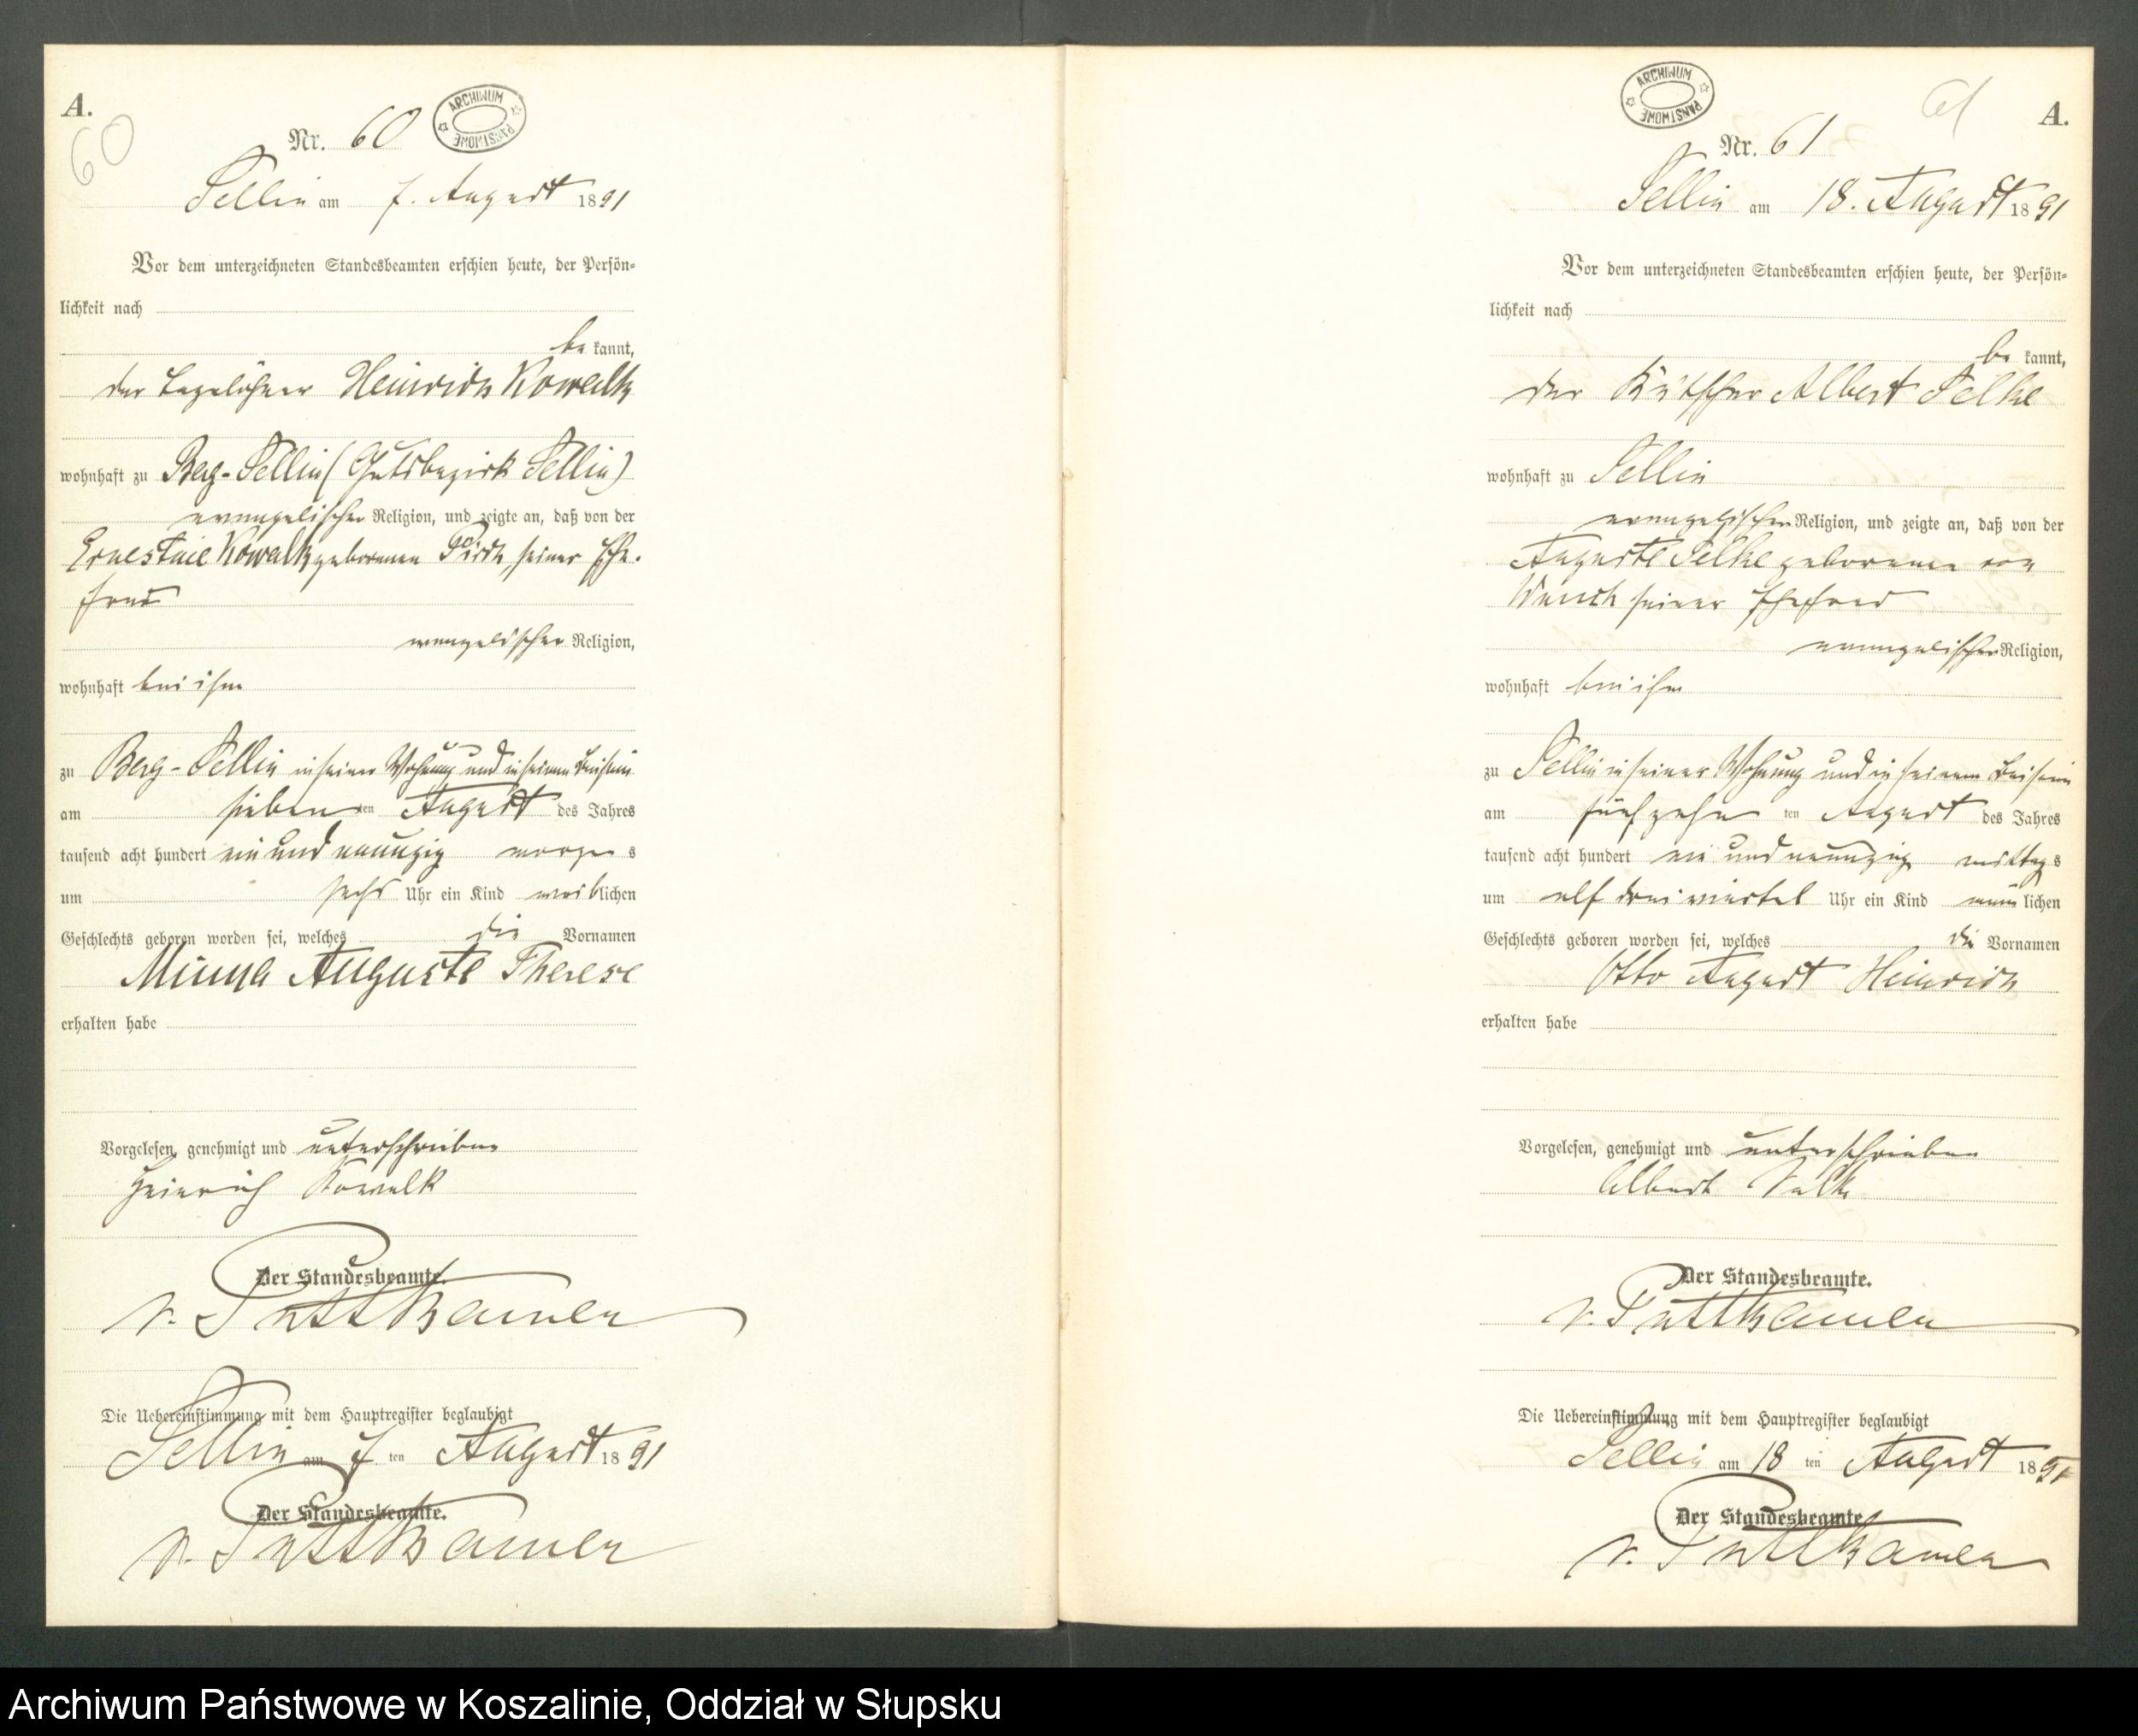 A.
60
Nr. 60
ARCHIWUM PAŃSTWOWE
Sellin am 7. August 1891
Vor dem unterzeichneten Standesbeamten erschien heute, der Persön-
lichkeit nach
be kannt,
der Tagelöhner Heinrich Kowalk
wohnhaft zu Berg-Sellin (Gutsbezirk Sellin)
evangelischer Religion, und zeigte an, daß von der
Ernestine Kowalk geborenen seiner Ehe-
frau
evangelischer Religion,
wohnhaft bei ihm
zu Berg-Sellin in seiner Wohnung und in seinem Beisein
am siebenten August des Jahres
tausend acht hundert ein und neunzig morgens
um sechs Uhr ein Kind weiblichen
Geschlechts geboren worden sei, welches die Vornamen
Minna Auguste Therese
erhalten habe
Vorgelesen, genehmigt und unterschrieben
Heinrich Kowalk
Der Standesbeamte.
v. Puttkamer
Die Uebereinstimmung mit dem Hauptregister beglaubigt
Sellin am 7 ten August 1891
Der Standesbeamte.
v. Puttkamer
ARCHIWUM PAŃSTWOWE
61
A.
Nr. 61
Sellin am 18. August 1891
Vor dem unterzeichneten Standesbeamten erschien heute, der Persön-
lichkeit nach
be kannt,
der Kutscher Albert Selke
wohnhaft zu Sellin
evangelischer Religion, und zeigte an, daß von der
Auguste Selke geborene von
Wensch seiner Ehefrau
evangelischer Religion,
wohnhaft bei ihm
zu Sellin in seiner Wohnung und in seinem Beisein
am fünfzehn ten August des Jahres
tausend acht hundert ein und neunzig mittags
um elf drei viertel Uhr ein Kind männlichen
Geschlechts geboren worden sei, welches die Vornamen
Otto August Heinrich
erhalten habe
Vorgelesen, genehmigt und unterschrieben
Albert Selke
Der Standesbeamte.
v. Puttkamer
Die Uebereinstimmung mit dem Hauptregister beglaubigt
Sellin am 18 ten August 1891
Der Standesbeamte.
v. Puttkamer
Archiwum Państwowe w Koszalinie, Oddział w Słupsku